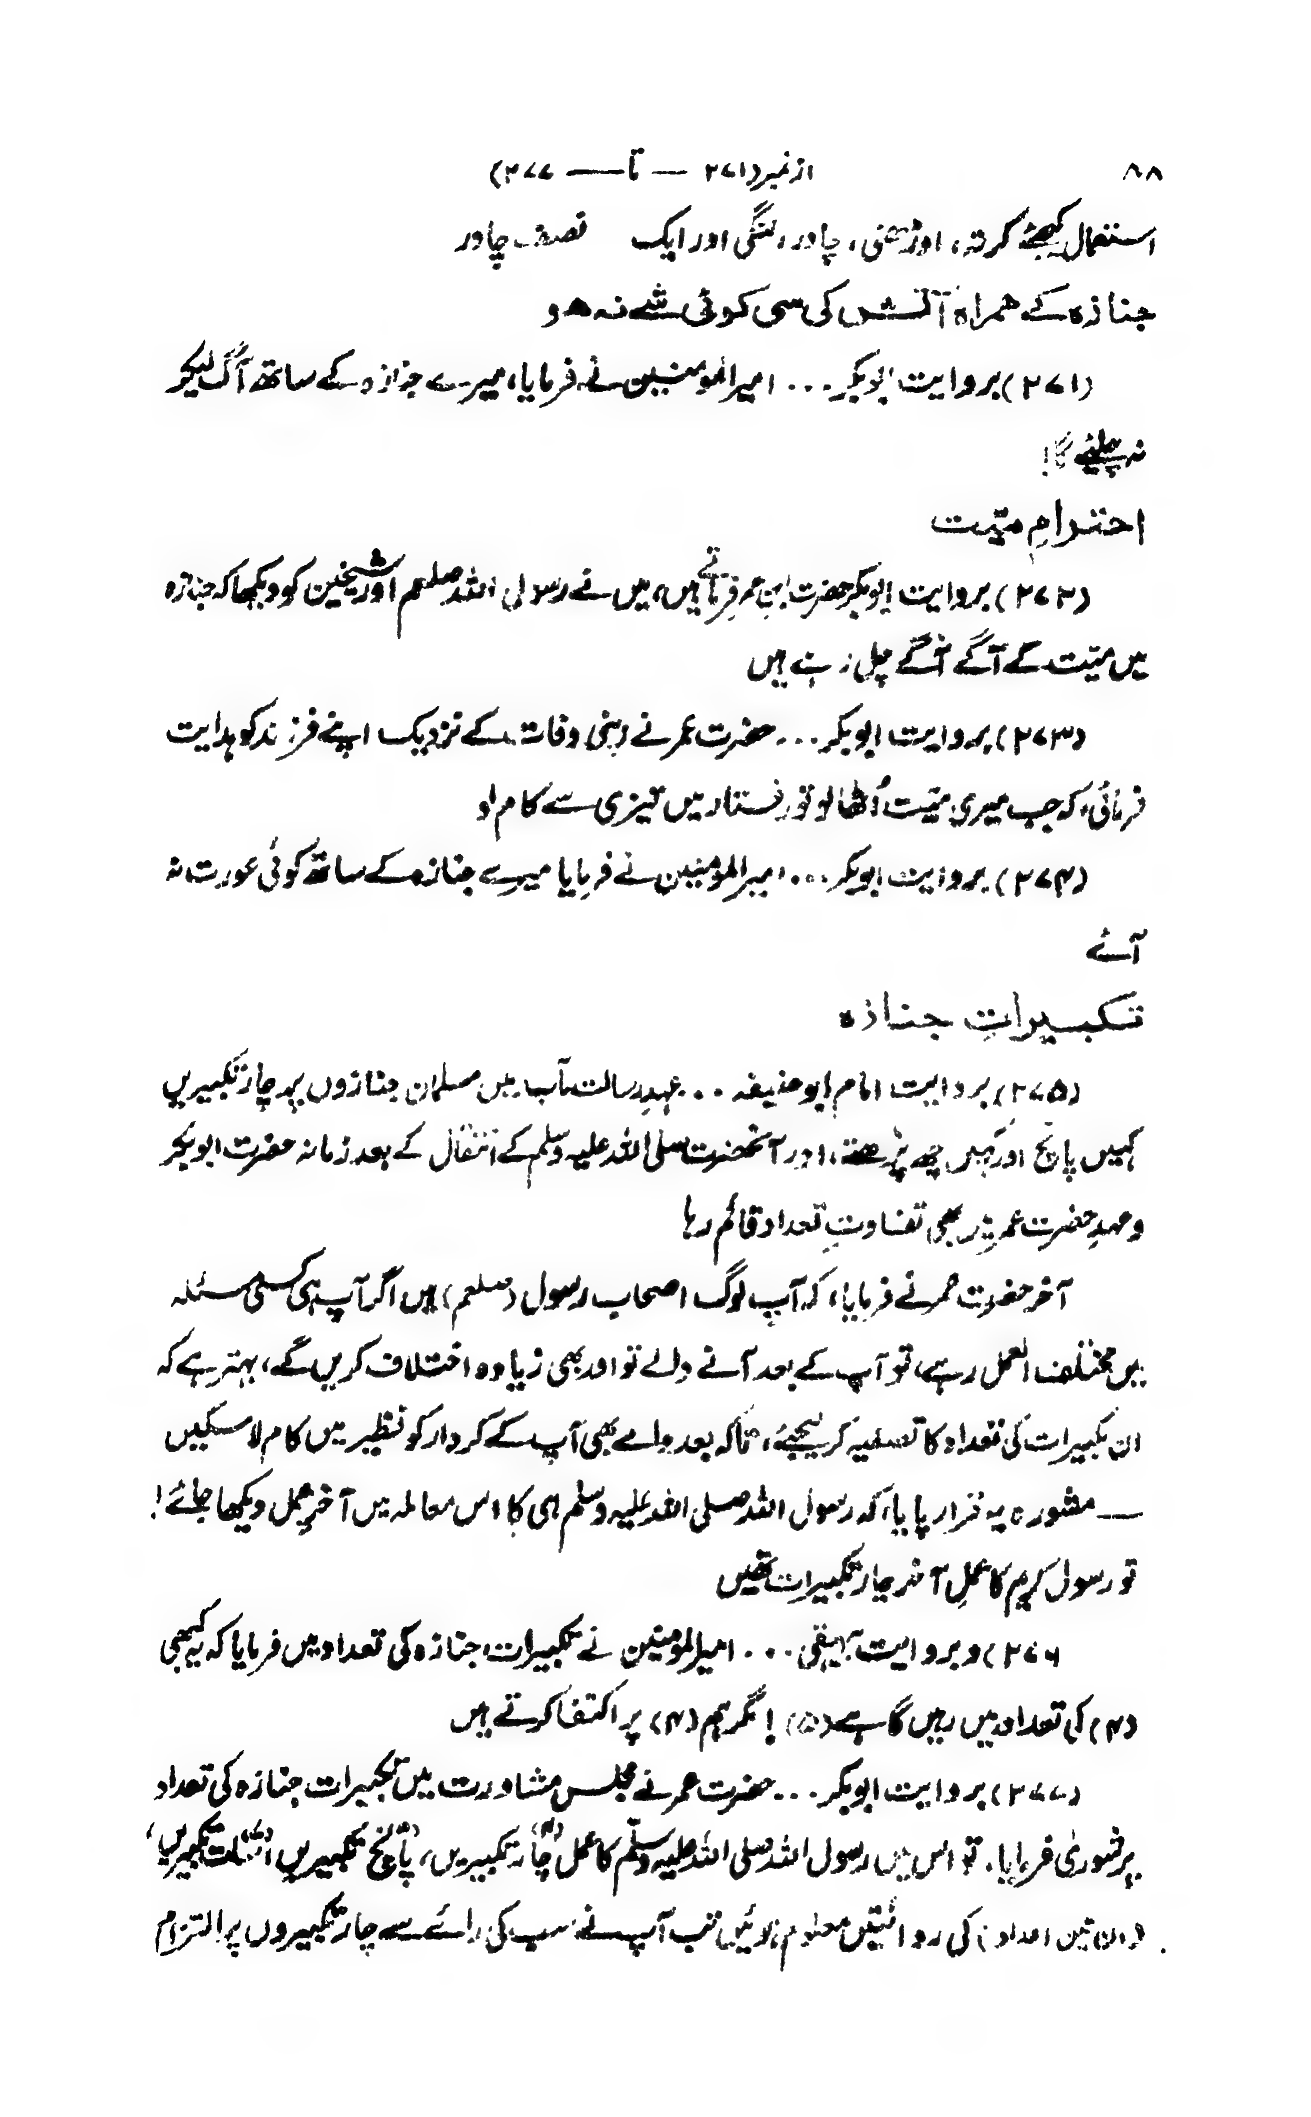 ۸۸ از نمبر (۲۷۱ — تا — ۲۷۷)
استعمال کیجئے کرتہ، اوڑھنی، چادر، لنگی اور ایک نصف چادر
جنازہ کے ہمراہ آتش کی سی کوئی شے نہ ہو
(۲۷۱) بروایت ابوبکر ... امیرالمومنین نے فرمایا، میرے جنازہ کے ساتھ آگ لیکر
نہ چلئے گا!
احترامِ میّت
(۲۷۲) بروایت ابوبکر حضرت ابن عمر فرماتے ہیں، میں نے رسول اللہ صلعم اور شیخین کو دیکھا کہ جنازہ
میں میّت کے آگے آگے چل رہے ہیں
(۲۷۳) بروایت ابوبکر ... حضرت عمر نے اپنی وفات کے نزدیک اپنے فرزند کو ہدایت
فرمائی، کہ جب میری میّت اُٹھا لو تو رفتار میں تیزی سے کام لو
(۲۷۴) بروایت ابوبکر ... امیرالمومنین نے فرمایا میرے جنازہ کے ساتھ کوئی عورت نہ
آئے
تکبیراتِ جنازہ
(۲۷۵) بروایت امام ابو حنیفہ ... عہدِ رسالت مآب میں مسلمان جنازوں پر چار تکبیریں
کہیں پانچ اور کہیں چھ پڑھتے، اور آنحضرت صلی اللہ علیہ وسلم کے انتقال کے بعد زمانہ حضرت ابوبکر
و عہدِ حضرت عمر پر بھی تفاوتِ تعداد قائم رہا
آخر حضرت عمر نے فرمایا، کہ آپ لوگ اصحاب رسول (صلعم) ہیں اگر آپ ہی کسی مسئلہ
میں مختلف العمل رہے، تو آپ کے بعد آنے والے تو اور بھی زیادہ اختلاف کریں گے، بہتر ہے کہ
ان تکبیرات کی تعداد کا تصفیہ کر لیجئے، تاکہ بعد والے بھی آپ کے کردار کو نظیر میں کام لا سکیں
— مشورہ یہ قرار پایا، کہ رسول اللہ صلی اللہ علیہ وسلم ہی کا اس معاملہ میں آخرِ عمل دیکھا جائے!
تو رسول کریم کا عملِ آخر چار تکبیرات تھیں
۲۷۶) و بروایت بیہقی ... امیرالمومنین نے تکبیرات جنازہ کی تعداد میں فرمایا کہ یہ کبھی
(۴) کی تعداد میں رہیں گاہے (۵)! مگر ہم (۴) پر اکتفا کرتے ہیں
(۲۷۷) بروایت ابوبکر ... حضرت عمر نے مجلس مشاورت میں تکبیرات جنازہ کی تعداد
پر شوریٰ فرمایا. تو اس میں رسول اللہ صلی اللہ علیہ وسلم کا عمل چار (۴) تکبیریں، پانچ تکبیریں، سات تکبیریں،
(ان تین اعداد) کی روائتیں معلوم ہوئیں تب آپ نے سب کی رائے سے چار تکبیروں پر التزام